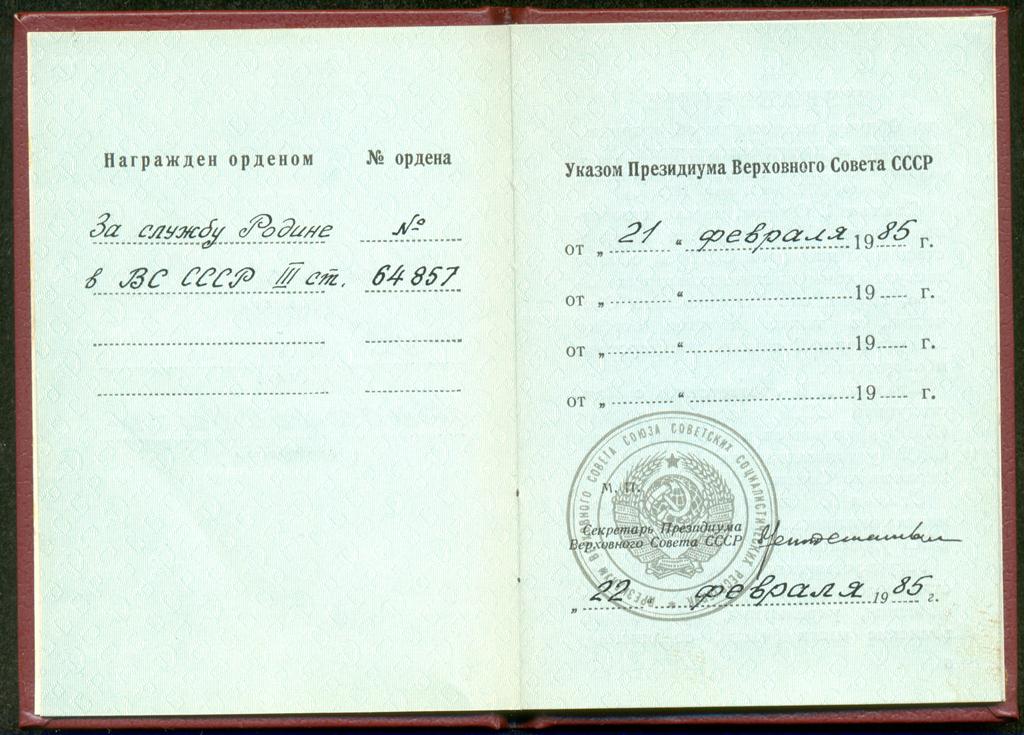 Награжден орденом № ордена
За службу Родине №
в ВС СССР III ст. 64857
Указом Президиума Верховного Совета СССР
от „ 21 “ февраля 1985 г.
от „ “ 19 г.
от „ “ 19 г.
от „ “ 19 г.
ПРЕЗИДИУМ ВЕРХОВНОГО СОВЕТА СОЮЗА СОВЕТСКИХ СОЦИАЛИСТИЧЕСКИХ РЕСПУБЛИК
М. П.
Секретарь Президиума
Верховного Совета СССР
„ 22 “ февраля 1985 г.